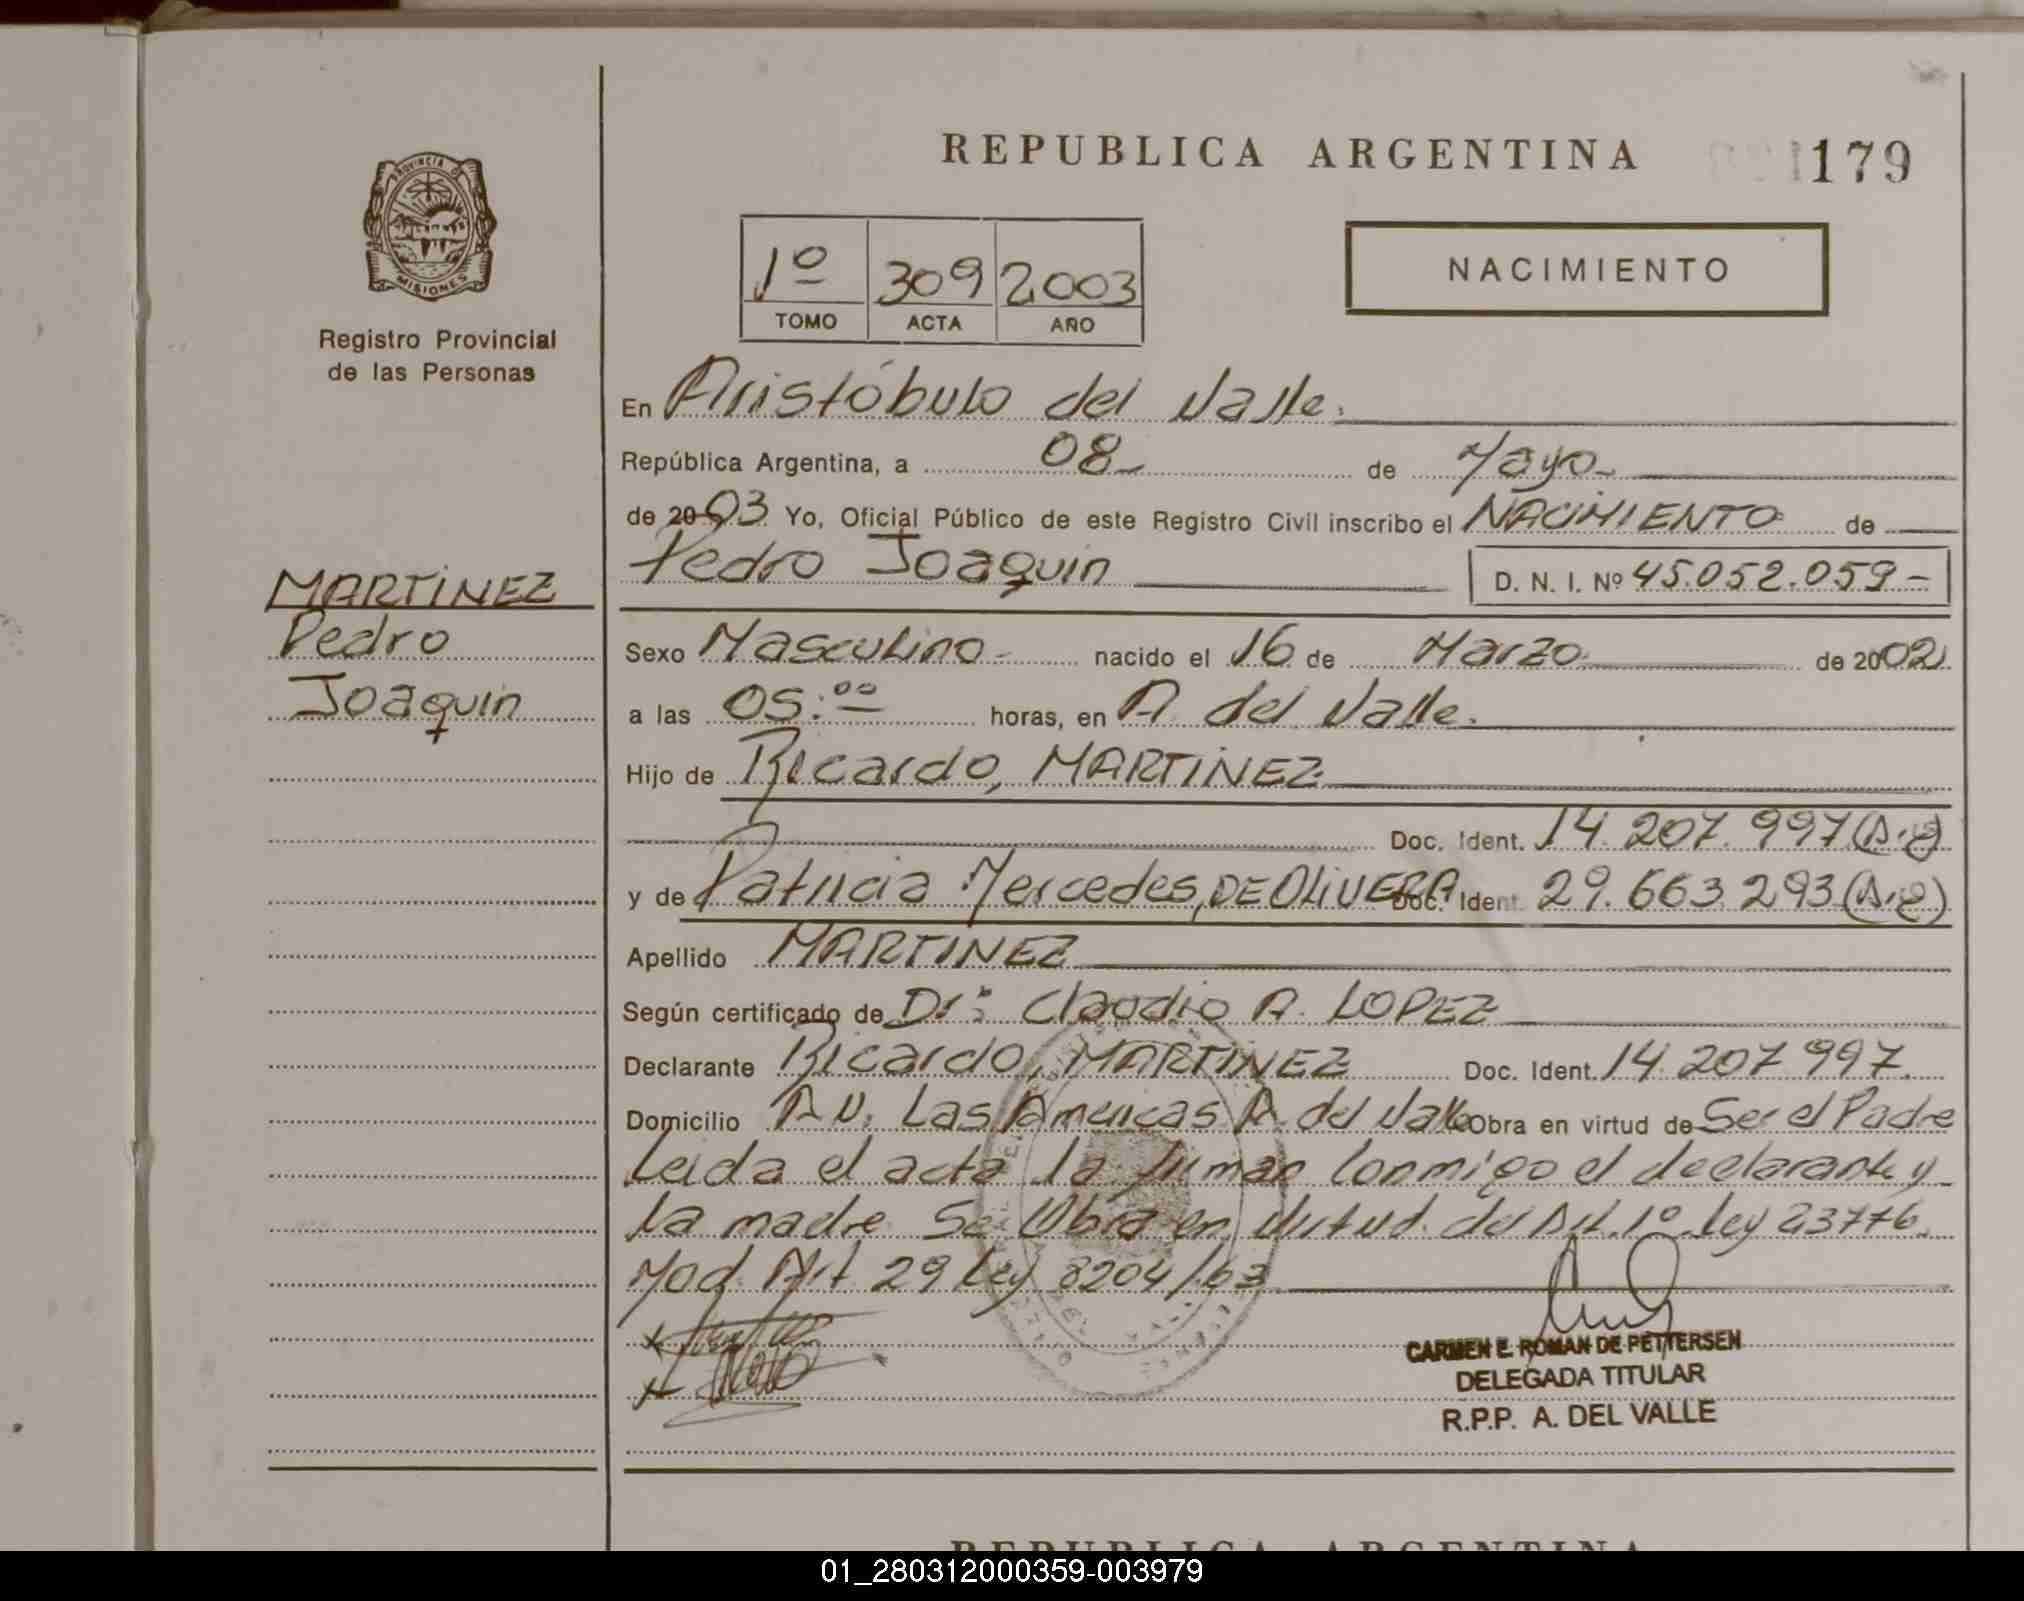 REPUBLICA ARGENTINA
179
PROVINCIA DE
MISIONES
Registro Provincial
de las Personas
1º 309 2003
TOMO ACTA AÑO
NACIMIENTO
En Aristóbulo del Valle.
República Argentina, a 08 de Mayo
de 2003 Yo, Oficial Público de este Registro Civil inscribo el NACIMIENTO de
Pedro Joaquin D. N. I. Nº 45.052.059
MARTINEZ
Pedro
Joaquin
Sexo Masculino nacido el 16 de Marzo de 2002
a las 05:00 horas, en A. del Valle.
Hijo de Ricardo, MARTINEZ
Doc. Ident. 14.207.997 (A.e)
y de Patricia Mercedes, DE OLIVERA Doc. Ident. 29.663.293 (A.e)
Apellido MARTINEZ
Según certificado de Dr: Claudio A. LOPEZ
Declarante Ricardo, MARTINEZ Doc. Ident. 14.207.997.
Domicilio Av. Las Americas A. del Valle Obra en virtud de Ser el Padre
Leida el acta la firman conmigo el declarante y
la madre. Se Obra en virtud del Art. 1º Ley 23776
Mod. Art 29 Ley 8204/63
CARMEN E. ROMAN DE PETTERSEN
DELEGADA TITULAR
R.P.P. A. DEL VALLE
REPUBLICA ARGENTINA
01_280312000359-003979